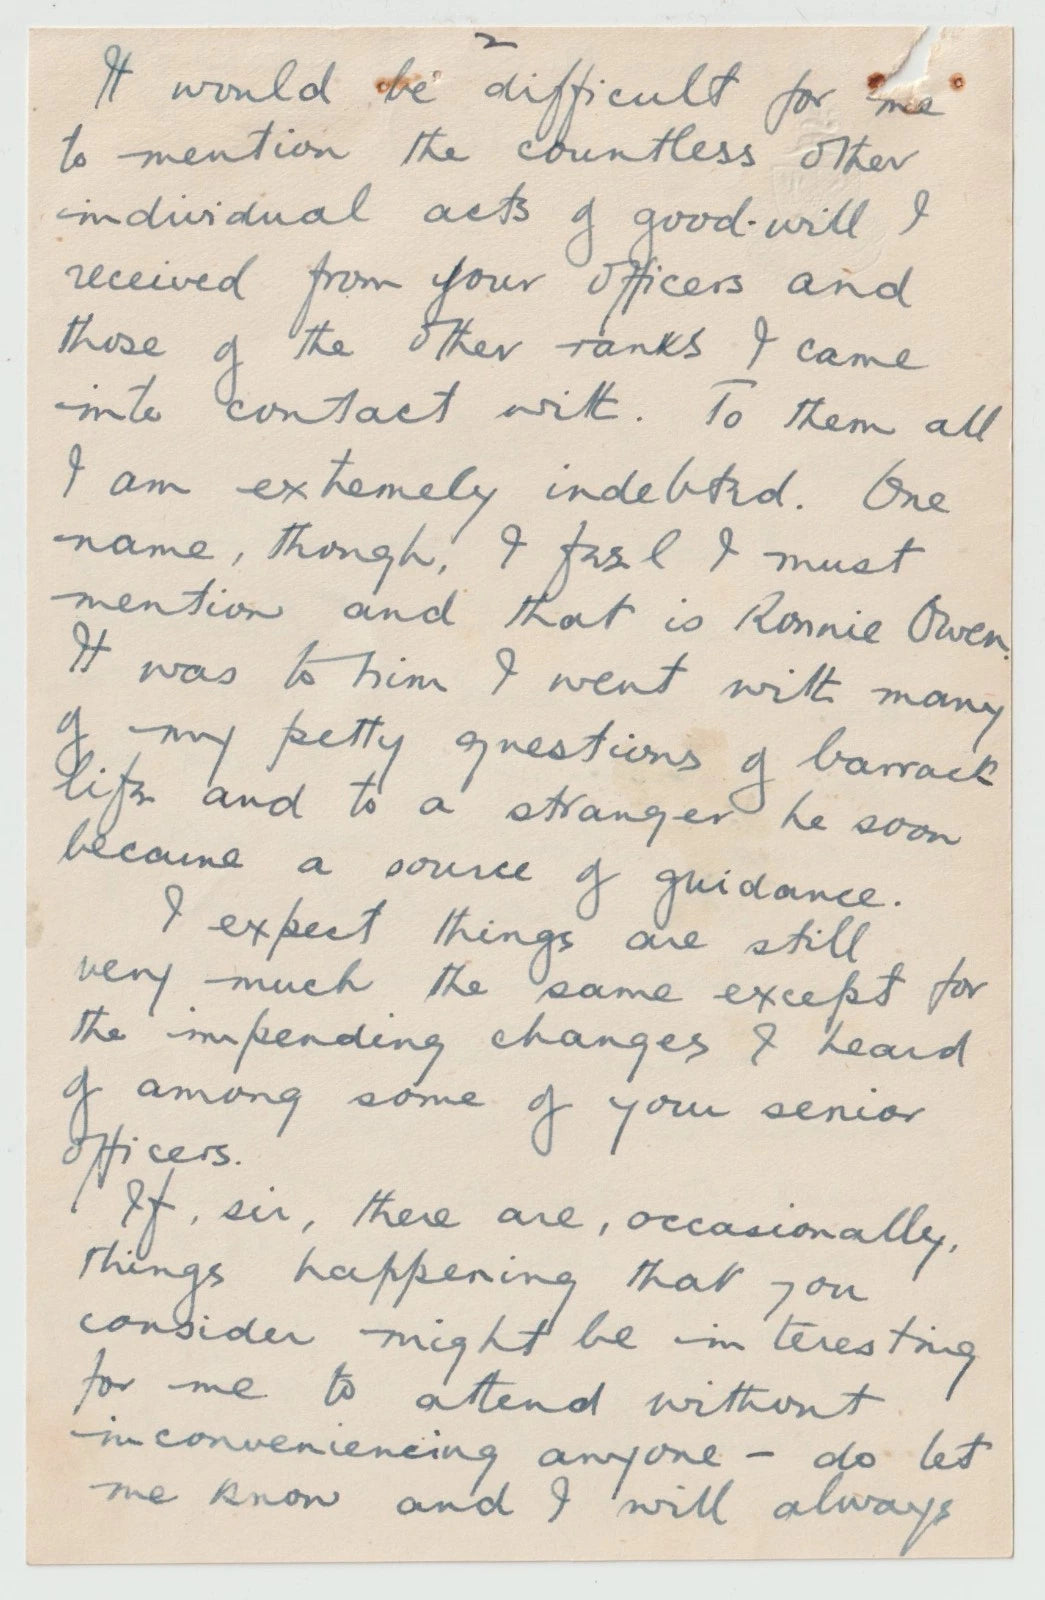 2
It would be difficult for me
to mention the countless other
individual acts of good-will I
received from your officers and
those of the other ranks I came
into contact with. To them all
I am extemely indebted. One
name, though, I feel I must
mention and that is Ronnie Owen.
It was to him I went with many
of my petty questions of barrack
life and to a stranger he soon
became a source of guidance.
I expect things are still
very much the same except for
the impending changes I heard
of among some of your senior
officers.
If, sir, there are, occasionally,
things happening that you
consider might be interesting
for me to attend without
inconveniencing anyone – do let
me know and I will always